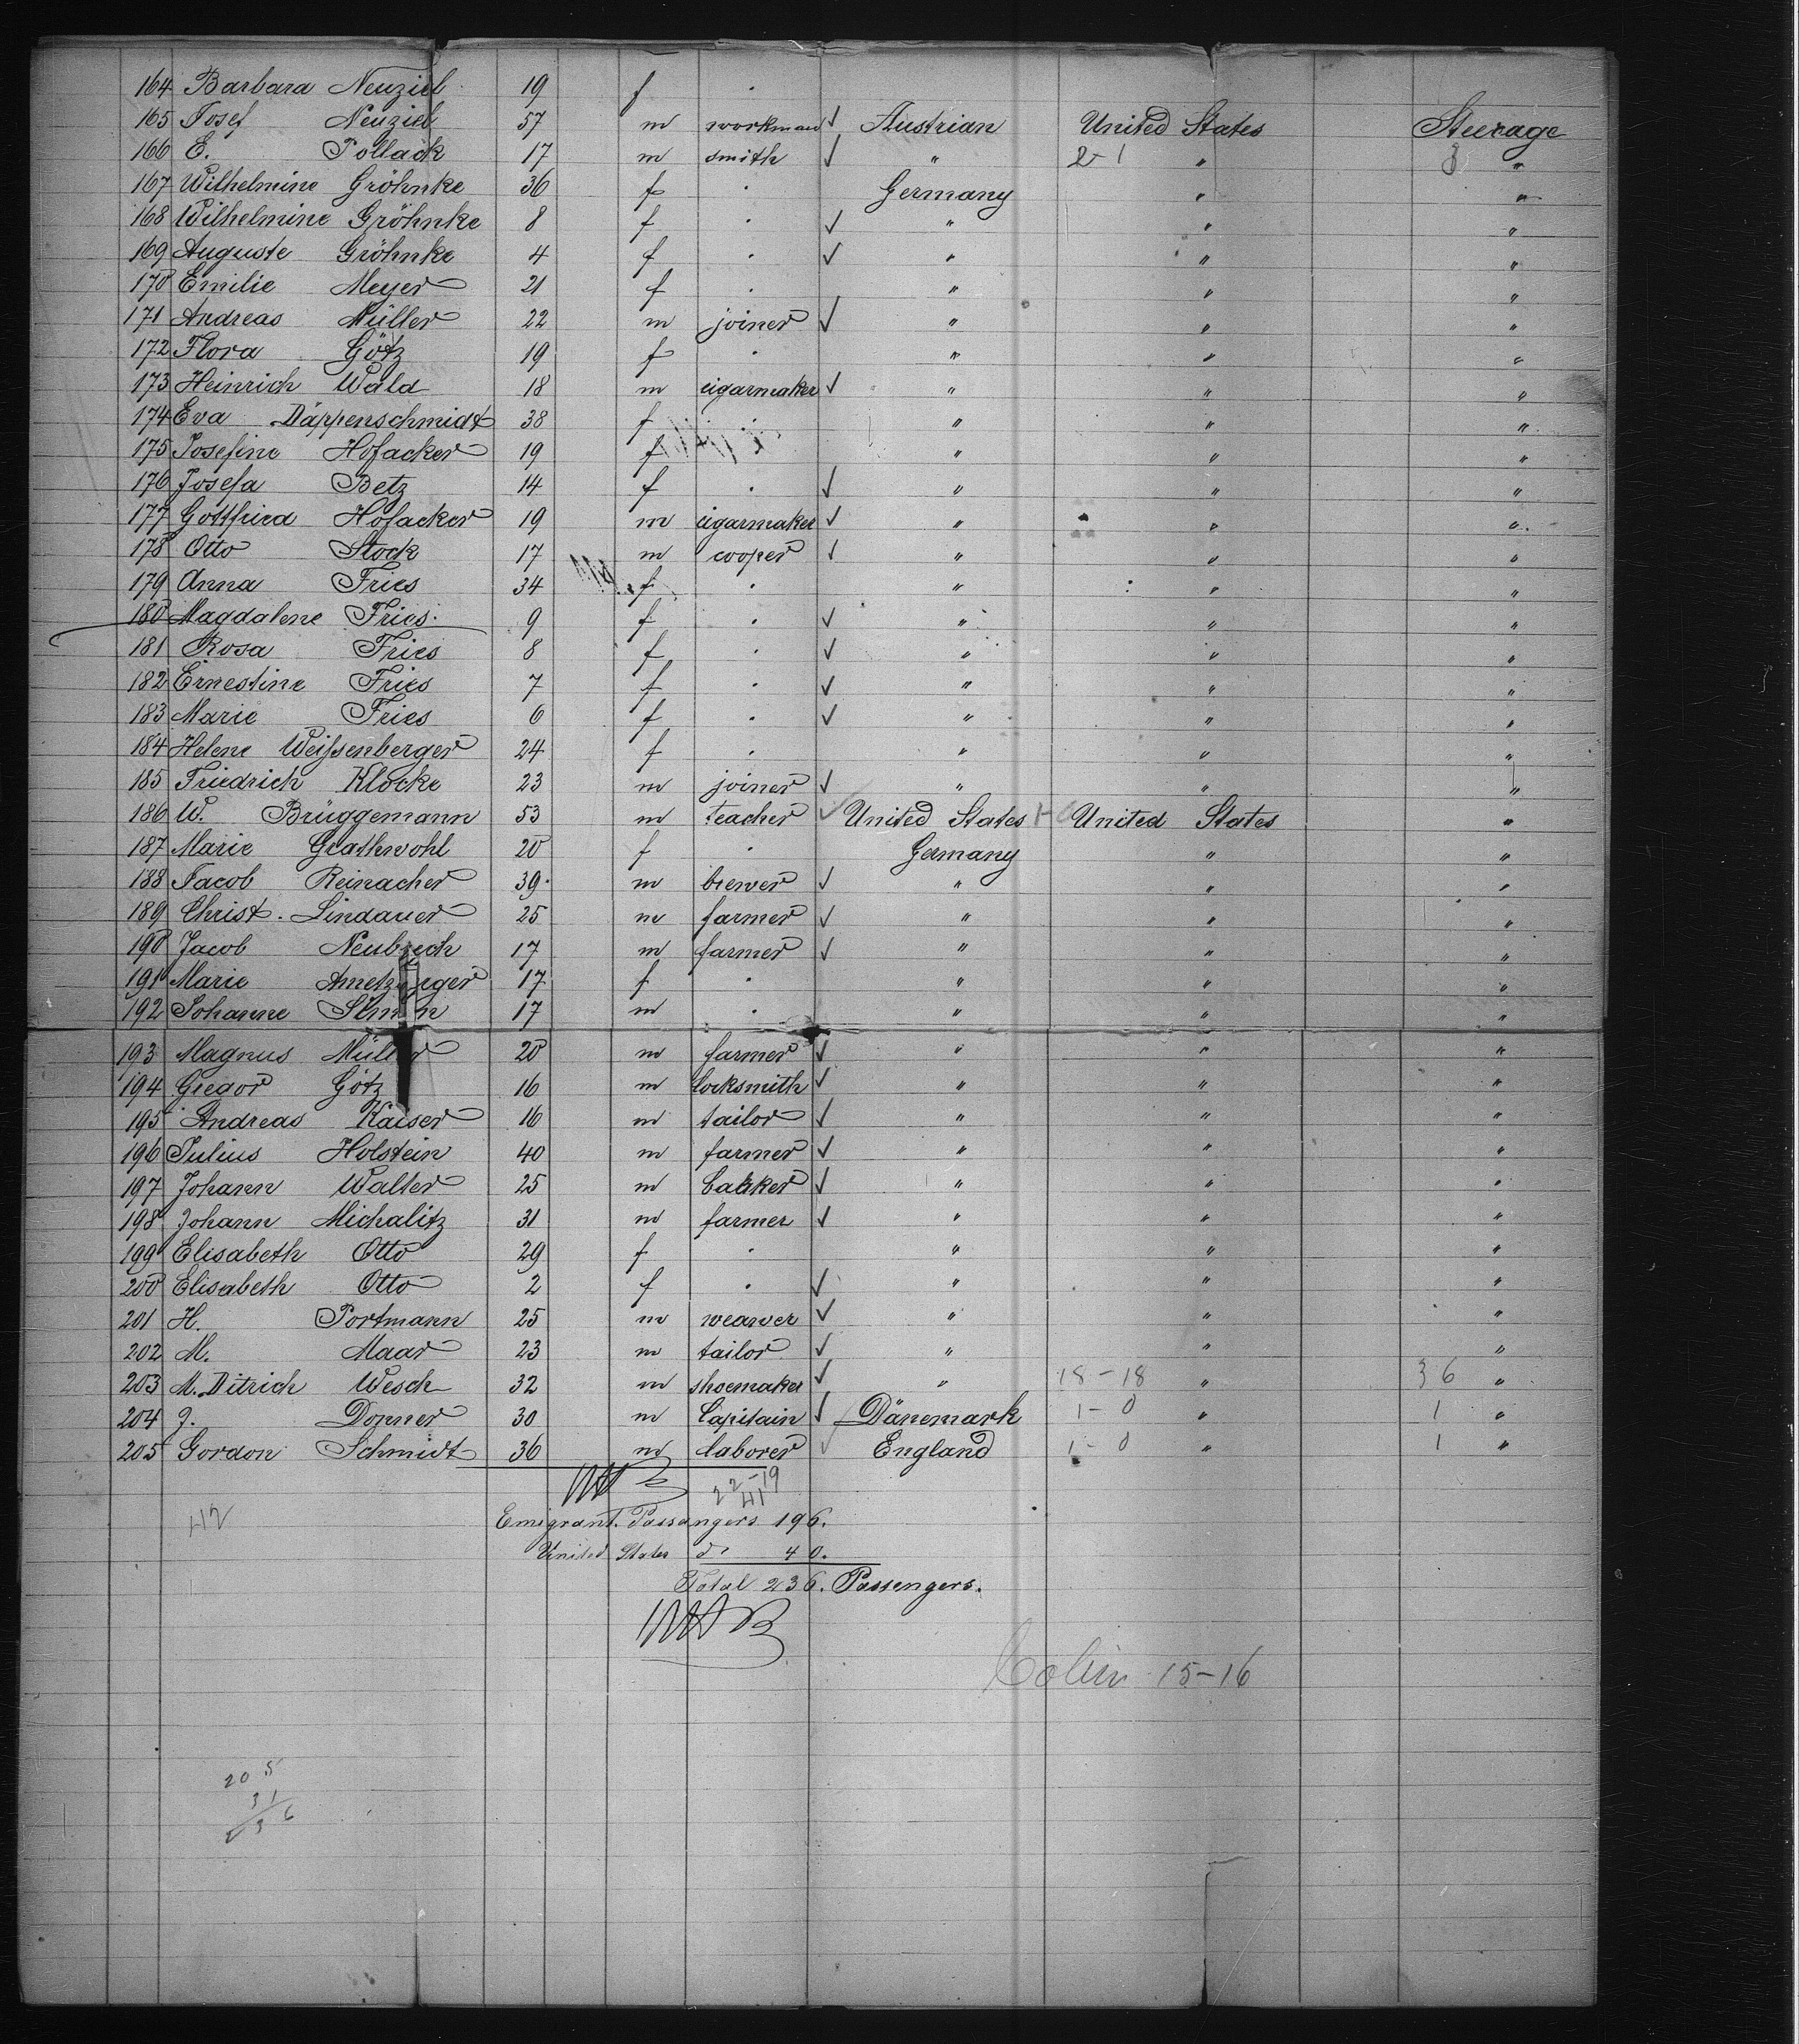 164 Barbara Neuziel 19 f
165 Josef Neuziel 57 m workman ✓ Austrian United States Steerage
166 E. Pollack 17 m smith ✓ " 2-1 " 3 "
167 Wilhelmine Gröhnke 36 f Germany " "
168 Wilhelmine Gröhnke 8 f ✓ " " "
169 Auguste Gröhnke 4 f ✓ " " "
170 Emilie Meyer 21 f " " "
171 Andreas Müller 22 m joiner ✓ " " "
172 Flora Götz 19 f " " "
173 Heinrich Wald 18 m cigarmaker ✓ " " "
174 Eva Däppenschmidt 38 f " " "
175 Josefine Hofacker 19 f " " "
176 Josefa Betz 14 f ✓ " " "
177 Gottfried Hofacker 19 m cigarmaker ✓ " " "
178 Otto Stock 17 m cooper ✓ " " "
179 Anna Fries 34 f " " "
180 Magdalene Fries 9 f ✓ " " "
181 Rosa Fries 8 f ✓ " " "
182 Ernestine Fries 7 f ✓ " " "
183 Marie Fries 6 f ✓ " " "
184 Helene Weissenberger 24 f " " "
185 Friedrich Klocke 23 m joiner ✓ " " "
186 W. Brüggemann 53 m teacher ✓ United States United States "
187 Marie Grathwohl 20 f Germany " "
188 Jacob Reinacher 39 m brewer ✓ " " "
189 Christ. Lindauer 25 m farmer ✓ " " "
190 Jacob Neubrech 17 m farmer ✓ " " "
191 Marie 17 f " " "
192 Johanne 17 m " " "
193 Magnus Müller 20 m farmer ✓ " " "
194 Gregor Götz 16 m locksmith ✓ " " "
195 Andreas Kaiser 16 m tailor ✓ " " "
196 Julius Holstein 40 m farmer ✓ " " "
197 Johann Walter 25 m ✓ " " "
198 Johann Michalitz 31 m farmer ✓ " " "
199 Elisabeth Otto 29 f " " "
200 Elisabeth Otto 2 f ✓ " " "
201 H. Portmann 25 m weawer ✓ " " "
202 M. Maar 23 m tailor ✓ " " "
203 M. Ditrich Wesch 32 m shoemaker ✓ " 18-18 " 36 "
204 J. Donner 30 m Capitain ✓ Dänemark 1-0 " 1 "
205 Gordon Schmidt 36 m laborer ✓ England 1-0 " 1 "
22-19
41
42
Emigrant. Passangers 196.
United States do 40.
Total 236. Passengers.
15-16
205
31
236